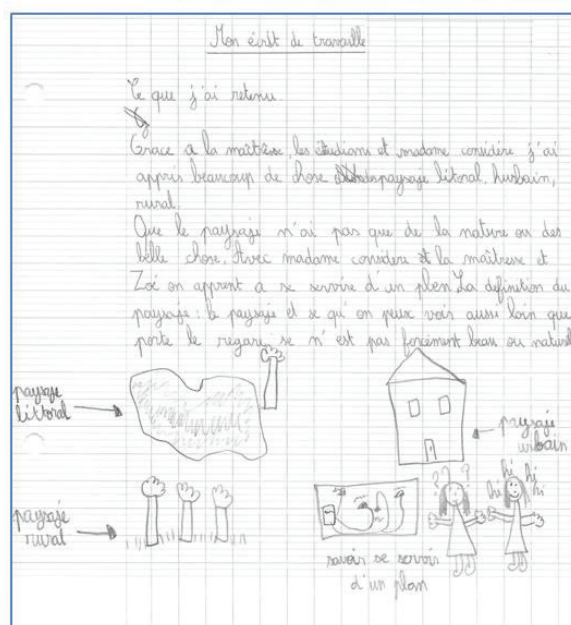 Mon écrit de travaille
Ce que j'ai retenu.
Grace a la maîtresse, les étudians et madame considère j'ai
appris beaucoup de chose paysage litoral, hurbain,
rural.
Que le paysage n'ai pas que de la nature ou des
belle chose. Avec madame considere et la maîtresse et
Zoé on apprent a se servire d'un plan La definition du
paysage : le paysage et se qu'on peux voir aussi loin que
porte le regare se n'est pas forcément beau ou naturel
paysage
littoral
paysage
urbain
paysage
rural
? ? ?
hi hi hi hi
savoir se servir
d'un plan